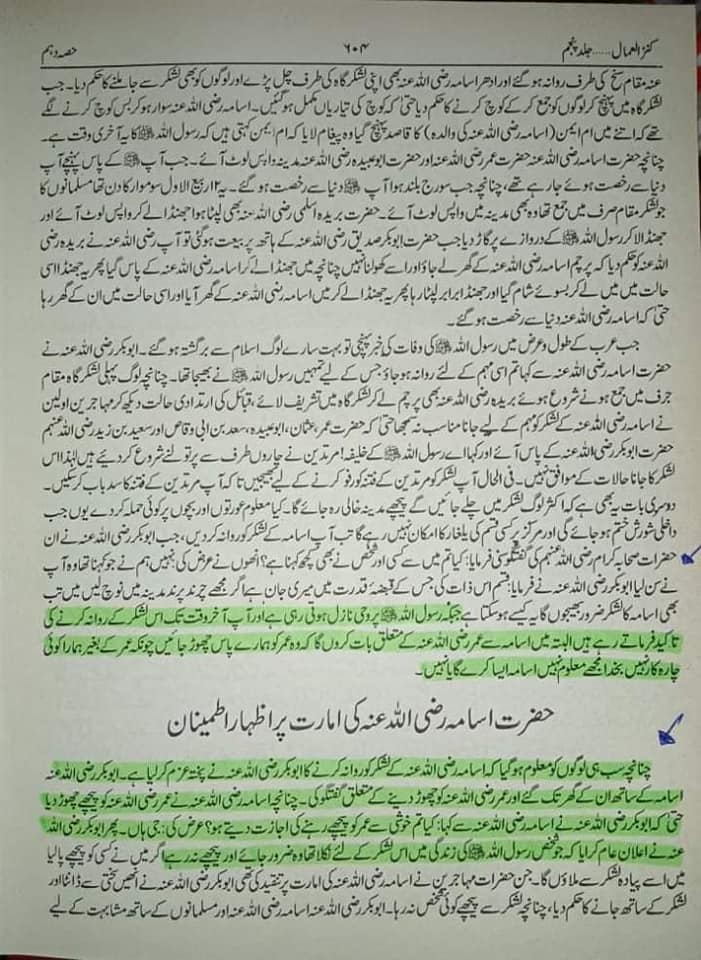 کنز العمال ..... جلد پنجم ۶۰۴ حصہ دہم
عنہ مقام سخ کی طرف روانہ ہوگئے اور ادھر اسامہ رضی اللہ عنہ بھی اپنی لشکر گاہ کی طرف چل پڑے اور لوگوں کو بھی لشکر سے جا ملنے کا حکم دیا۔ جب
لشکر گاہ میں پہنچ کر لوگوں کو جمع کر کے کوچ کرنے کا حکم دیا حتیٰ کہ کوچ کی تیاریاں مکمل ہوگئیں۔ اسامہ رضی اللہ عنہ سوار ہو کر بس کوچ کرنے لگے
تھے کہ اتنے میں ام ایمن (اسامہ رضی اللہ عنہ کی والدہ) کا قاصد پہنچ گیا وہ پیغام لایا کہ ام ایمن کہتی ہیں کہ رسول اللہ ﷺ کا یہ آخری وقت ہے۔
چنانچہ حضرت اسامہ رضی اللہ عنہ حضرت عمر رضی اللہ عنہ اور حضرت ابوعبیدہ رضی اللہ عنہ مدینہ واپس لوٹ آئے۔ جب آپ ﷺ کے پاس پہنچے آپ
دنیا سے رخصت ہوئے جا رہے تھے، چنانچہ جب سورج بلند ہوا آپ ﷺ دنیا سے رخصت ہوگئے۔ یہ ۱۲ ربیع الاول سوموار کا دن تھا مسلمانوں کا
جو لشکر مقام صرف میں جمع تھا وہ بھی مدینہ میں واپس لوٹ آئے۔ حضرت بریدہ اسلمی رضی اللہ عنہ بھی لپٹا ہوا جھنڈا لے کر واپس لوٹ آئے اور
جھنڈا لا کر رسول اللہ ﷺ کے دروازے پر گاڑ دیا جب حضرت ابوبکر صدیق رضی اللہ عنہ کے ہاتھ پر بیعت ہوگئی تو آپ رضی اللہ عنہ نے بریدہ رضی
اللہ عنہ کو حکم دیا کہ پرچم اسامہ رضی اللہ عنہ کے گھر لے جاؤ اور اسے کھولنا نہیں چنانچہ میں جھنڈا لے کر اسامہ رضی اللہ عنہ کے پاس گیا پھر یہ جھنڈا اسی
حالت میں میں لے کر بسوئے شام گیا اور جھنڈا برابر لپٹا رہا پھر یہ جھنڈا لے کر میں اسامہ رضی اللہ عنہ کے گھر آیا اور اسی حالت میں ان کے گھر رہا
حتیٰ کہ اسامہ رضی اللہ عنہ دنیا سے رخصت ہوگئے۔
جب عرب کے طول و عرض میں رسول اللہ ﷺ کی وفات کی خبر پہنچی تو بہت سارے لوگ اسلام سے برگشتہ ہوگئے۔ ابوبکر رضی اللہ عنہ نے
حضرت اسامہ رضی اللہ عنہ سے کہا تم اسی مہم کے لئے روانہ ہو جاؤ جس کے لیے تمہیں رسول اللہ ﷺ نے بھیجا تھا۔ چنانچہ لوگ پہلی لشکر گاہ مقام
جرف میں جمع ہونے شروع ہوئے بریدہ رضی اللہ عنہ بھی پرچم لے کر لشکر گاہ میں تشریف لائے، قبائل کی ارتدادی حالت دیکھ کر مہاجرین اولین
نے اسامہ رضی اللہ عنہ کے لشکر کو مہم کے لیے جانا مناسب نہ سمجھا حتیٰ کہ حضرت عمر، عثمان، ابوعبیدہ، سعد بن ابی وقاص اور سعید بن زید رضی اللہ عنہم
حضرت ابوبکر رضی اللہ عنہ کے پاس آئے اور کہا اے رسول اللہ کے خلیفہ! مرتدین نے چاروں طرف سے پر تولنے شروع کر دیئے ہیں لہٰذا اس
لشکر کا جانا حالات کے موافق نہیں۔ فی الحال آپ لشکر کو مرتدین کے فتنہ کو فرو کرنے کے لیے بھیجیں تا کہ آپ مرتدین کے فتنہ کا سدباب کر سکیں۔
دوسری بات یہ بھی ہے کہ اکثر لوگ لشکر میں چلے جائیں گے پیچھے مدینہ خالی رہ جائے گا۔ کیا معلوم عورتوں اور بچوں پر کوئی حملہ کر دے یوں جب
داخلی شورش ختم ہو جائے گی اور مرکز پر کسی قسم کی یلغار کا امکان نہیں رہے گا تب آپ اسامہ کے لشکر کو روانہ کر دیں، جب ابوبکر رضی اللہ عنہ نے ان
حضرات صحابہ کرام رضی اللہ عنہم کی گفتگو سنی فرمایا: کیا تم میں سے کسی اور شخص نے بھی کچھ کہنا ہے؟ انھوں نے عرض کی: نہیں ہم نے جو کہنا تھا وہ آپ
نے سن لیا ابوبکر رضی اللہ عنہ نے فرمایا: قسم اس ذات کی جس کے قبضۂ قدرت میں میری جان ہے اگر مجھے چرند پرند مدینہ میں نوچ لیں میں تب
بھی اسامہ کا لشکر ضرور بھیجوں گا یہ کیسے ہوسکتا ہے جبکہ رسول اللہ ﷺ پر وحی نازل ہوتی رہی ہے اور آپ آخر وقت تک اس لشکر کے روانہ کرنے کی
تاکید فرماتے رہے ہیں البتہ میں اسامہ سے عمر رضی اللہ عنہ کے متعلق بات کروں گا کہ وہ عمر کو ہمارے پاس چھوڑ جائیں چونکہ عمر کے بغیر ہمارا کوئی
چارہ کار نہیں بخدا مجھے معلوم نہیں اسامہ ایسا کرے گا یا نہیں۔
حضرت اسامہ رضی اللہ عنہ کی امارت پر اظہار اطمینان
چنانچہ سب ہی لوگوں کو معلوم ہوگیا کہ اسامہ رضی اللہ عنہ کے لشکر کو روانہ کرنے کا ابوبکر رضی اللہ عنہ نے پختہ عزم کر لیا ہے۔ ابوبکر رضی اللہ عنہ
اسامہ کے ساتھ ان کے گھر تک گئے اور عمر رضی اللہ عنہ کو چھوڑ دینے کے متعلق گفتگو کی۔ چنانچہ اسامہ رضی اللہ عنہ نے عمر رضی اللہ عنہ کو پیچھے چھوڑ دیا
حتیٰ کہ ابوبکر رضی اللہ عنہ نے اسامہ رضی اللہ عنہ سے کہا: کیا تم خوشی سے عمر کو پیچھے رہنے کی اجازت دیتے ہو؟ عرض کی: جی ہاں۔ پھر ابوبکر رضی اللہ
عنہ نے اعلان عام کرایا کہ جو شخص رسول اللہ ﷺ کی زندگی میں اس لشکر کے لئے نکلا تھا وہ ضرور جائے اور پیچھے نہ رہے اگر میں نے کسی کو پیچھے پا لیا
میں اسے پیادہ لشکر سے ملاؤں گا۔ جن حضرات مہاجرین نے اسامہ رضی اللہ عنہ کی امارت پر تنقید کی تھی ابوبکر رضی اللہ عنہ نے انھیں سختی سے ڈانٹا اور
لشکر کے ساتھ جانے کا حکم دیا، چنانچہ لشکر سے پیچھے کوئی شخص نہ رہا۔ ابوبکر رضی اللہ عنہ اسامہ رضی اللہ عنہ اور مسلمانوں کے ساتھ مشابہت کے لیے